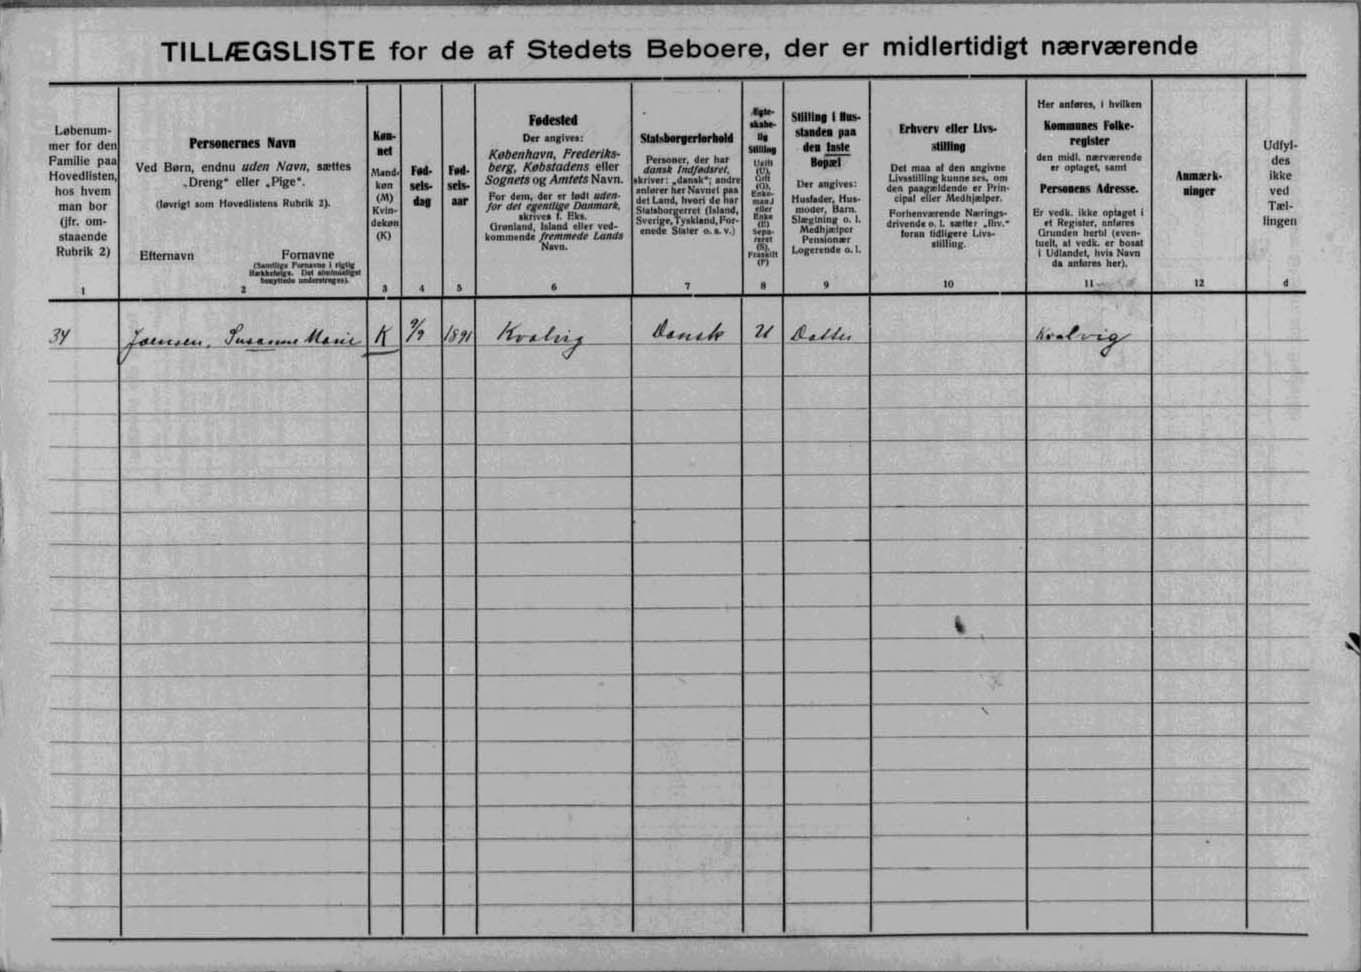 TILLÆGSLISTE for de af Stedets Beboere, der er midlertidigt nærværende
Løbenum-
mer for den
Familie paa
Hovedlisten,
hos hvem
man bor
(jfr. om-
staaende
Rubrik 2)
1
Personernes Navn
Ved Børn, endnu uden Navn, sættes
„Dreng“ eller „Pige“.
(Iøvrigt som Hovedlistens Rubrik 2).
Efternavn Fornavne
(Samtlige Fornavne i rigtig
Rækkefølge. Det almindeligst
benyttede understreges).
2
Køn-
net
Mand-
køn
(M)
Kvin-
dekøn
(K)
3
Fød-
sels-
dag
4
Fød-
sels-
aar
5
Fødested
Der angives:
København, Frederiks-
berg, Købstadens eller
Sognets og Amtets Navn.
For dem, der er født uden-
for det egentlige Danmark,
skrives f. Eks.
Grønland, Island eller ved-
kommende fremmede Lands
Navn.
6
Statsborgerforhold
Personer, der har
dansk Indfødsret,
skriver: „dansk“; andre
anfører her Navnet paa
det Land, hvori de har
Statsborgerret (Island,
Sverige, Tyskland, For-
enede Stater o. s. v.)
7
Egte-
skabe-
lig
Stilling
Ugift
(U),
Gift
(G),
Enke-
mand
eller
Enke
(E)
Sepa-
reret
(S),
Fraskilt
(F)
8
Stilling i Hus-
standen paa
den faste
Bopæl
Der angives:
Husfader, Hus-
moder, Barn,
Slægtning o. l.
Medhjælper
Pensionær
Logerende o. l.
9
Erhverv eller Livs-
stilling
Det maa af den angivne
Livsstilling kunne ses, om
den paagældende er Prin-
cipal eller Medhjælper.
Forhenværende Nærings-
drivende o. l. sætter „fhv.“
foran tidligere Livs-
stilling.
10
Her anføres, i hvilken
Kommunes Folke-
register
den midl. nærværende
er optaget, samt
Personens Adresse.
Er vedk. ikke optaget i
et Register, anføres
Grunden hertil (even-
tuelt, at vedk. er bosat
i Udlandet, hvis Navn
da anføres her).
11
Anmærk-
ninger
12
Udfyl-
des
ikke
ved
Tæl-
lingen
d
34 Joensen, Susanne Marie K 9/9 1891 Kvalvig Dansk U Datter Kvalvig